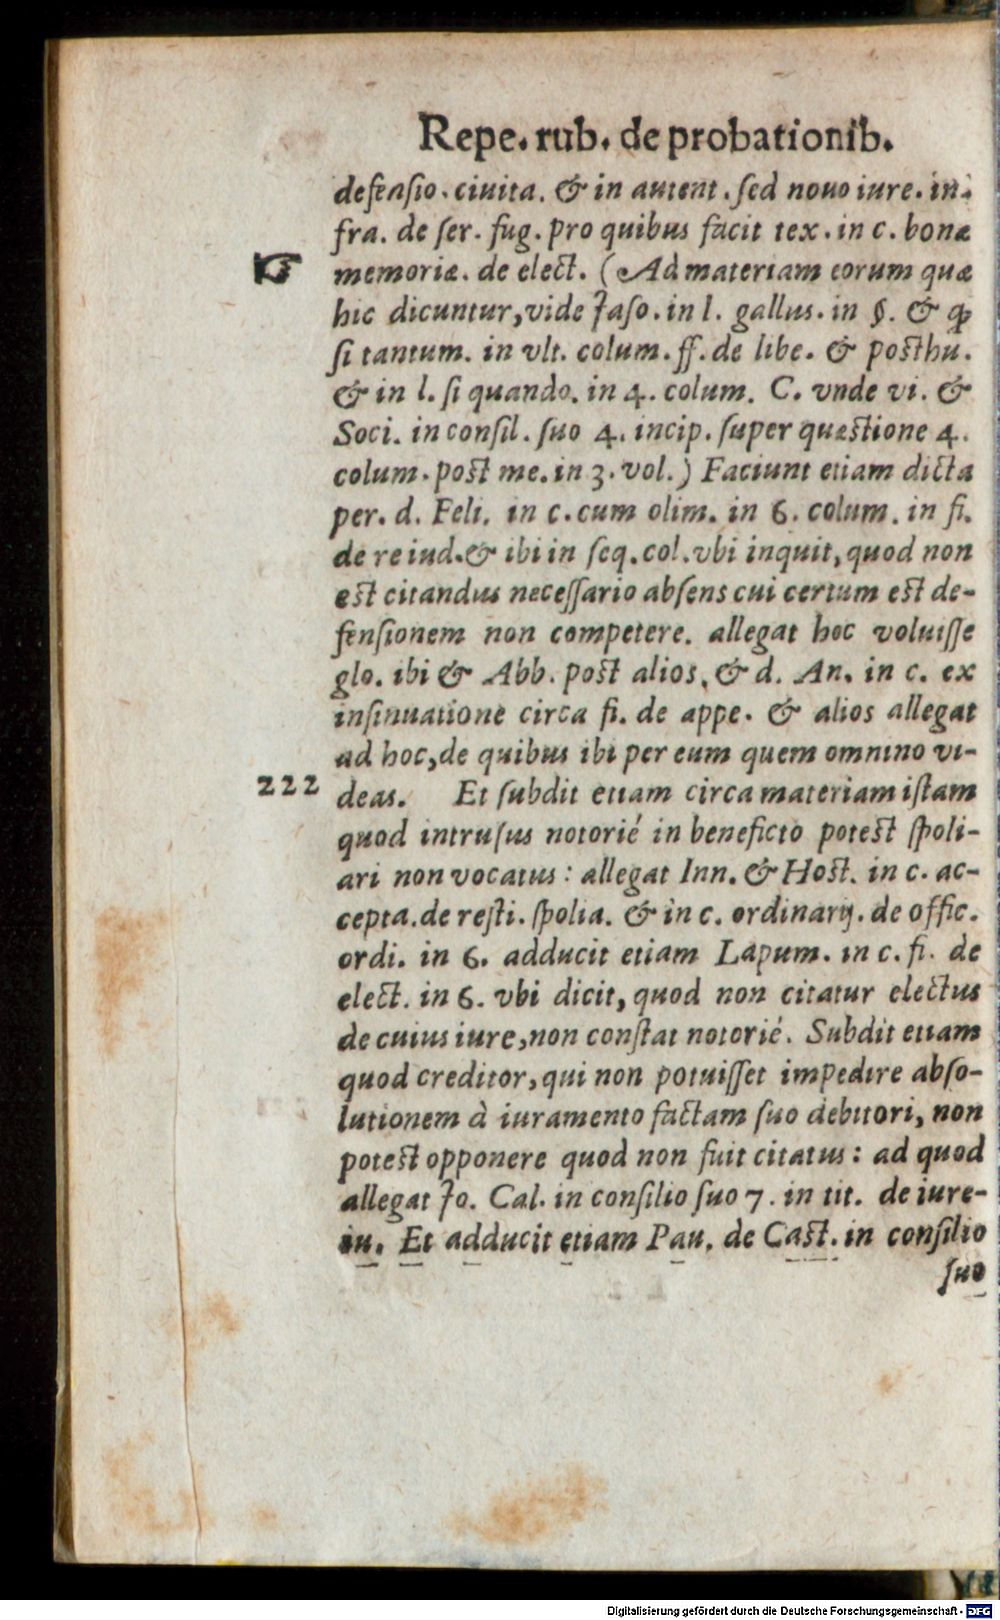 Repe. rub. de probationib.
defensio. ciuita. & in autent. sed nouo iure. in-
fra. de ser. fug. pro quibus facit tex. in c. bonæ
☞ memoriæ. de elect. (Ad materiam eorum quæ
hic dicuntur, vide Jaso. in l. gallus. in §. & ꝙ
si tantum. in vlt. colum. ff. de libe. & posthu.
& in l. si quando. in 4. colum. C. vnde vi. &
Soci. in consil. suo 4. incip. super quæstione 4.
colum. post me. in 3. vol.) Faciunt etiam dicta
per. d. Feli. in c. cum olim. in 6. colum. in fi.
de re iud. & ibi in seq. col. vbi inquit, quod non
est citandus necessario absens cui certum est de-
fensionem non competere. allegat hoc voluisse
glo. ibi & Abb. post alios, & d. An. in c. ex
insinuatione circa fi. de appe. & alios allegat
ad hoc, de quibus ibi per eum quem omnino vi-
222 deas. Et subdit etiam circa materiam istam
quod intrusus notorié in beneficio potest spoli-
ari non vocatus: allegat Inn. & Host. in c. ac-
cepta. de resti. spolia. & in c. ordinarij. de offic.
ordi. in 6. adducit etiam Lapum. in c. fi. de
elect. in 6. vbi dicit, quod non citatur electus
de cuius iure, non constat notorié. Subdit etiam
quod creditor, qui non potuisset impedire abso-
lutionem à iuramento factam suo debitori, non
potest opponere quod non fuit citatus: ad quod
allegat Jo. Cal. in consilio suo 7. in tit. de iure-
iu. Et adducit etiam Pau. de Cast. in consilio
suo
Digitalisierung gefördert durch die Deutsche Forschungsgemeinschaft - DFG